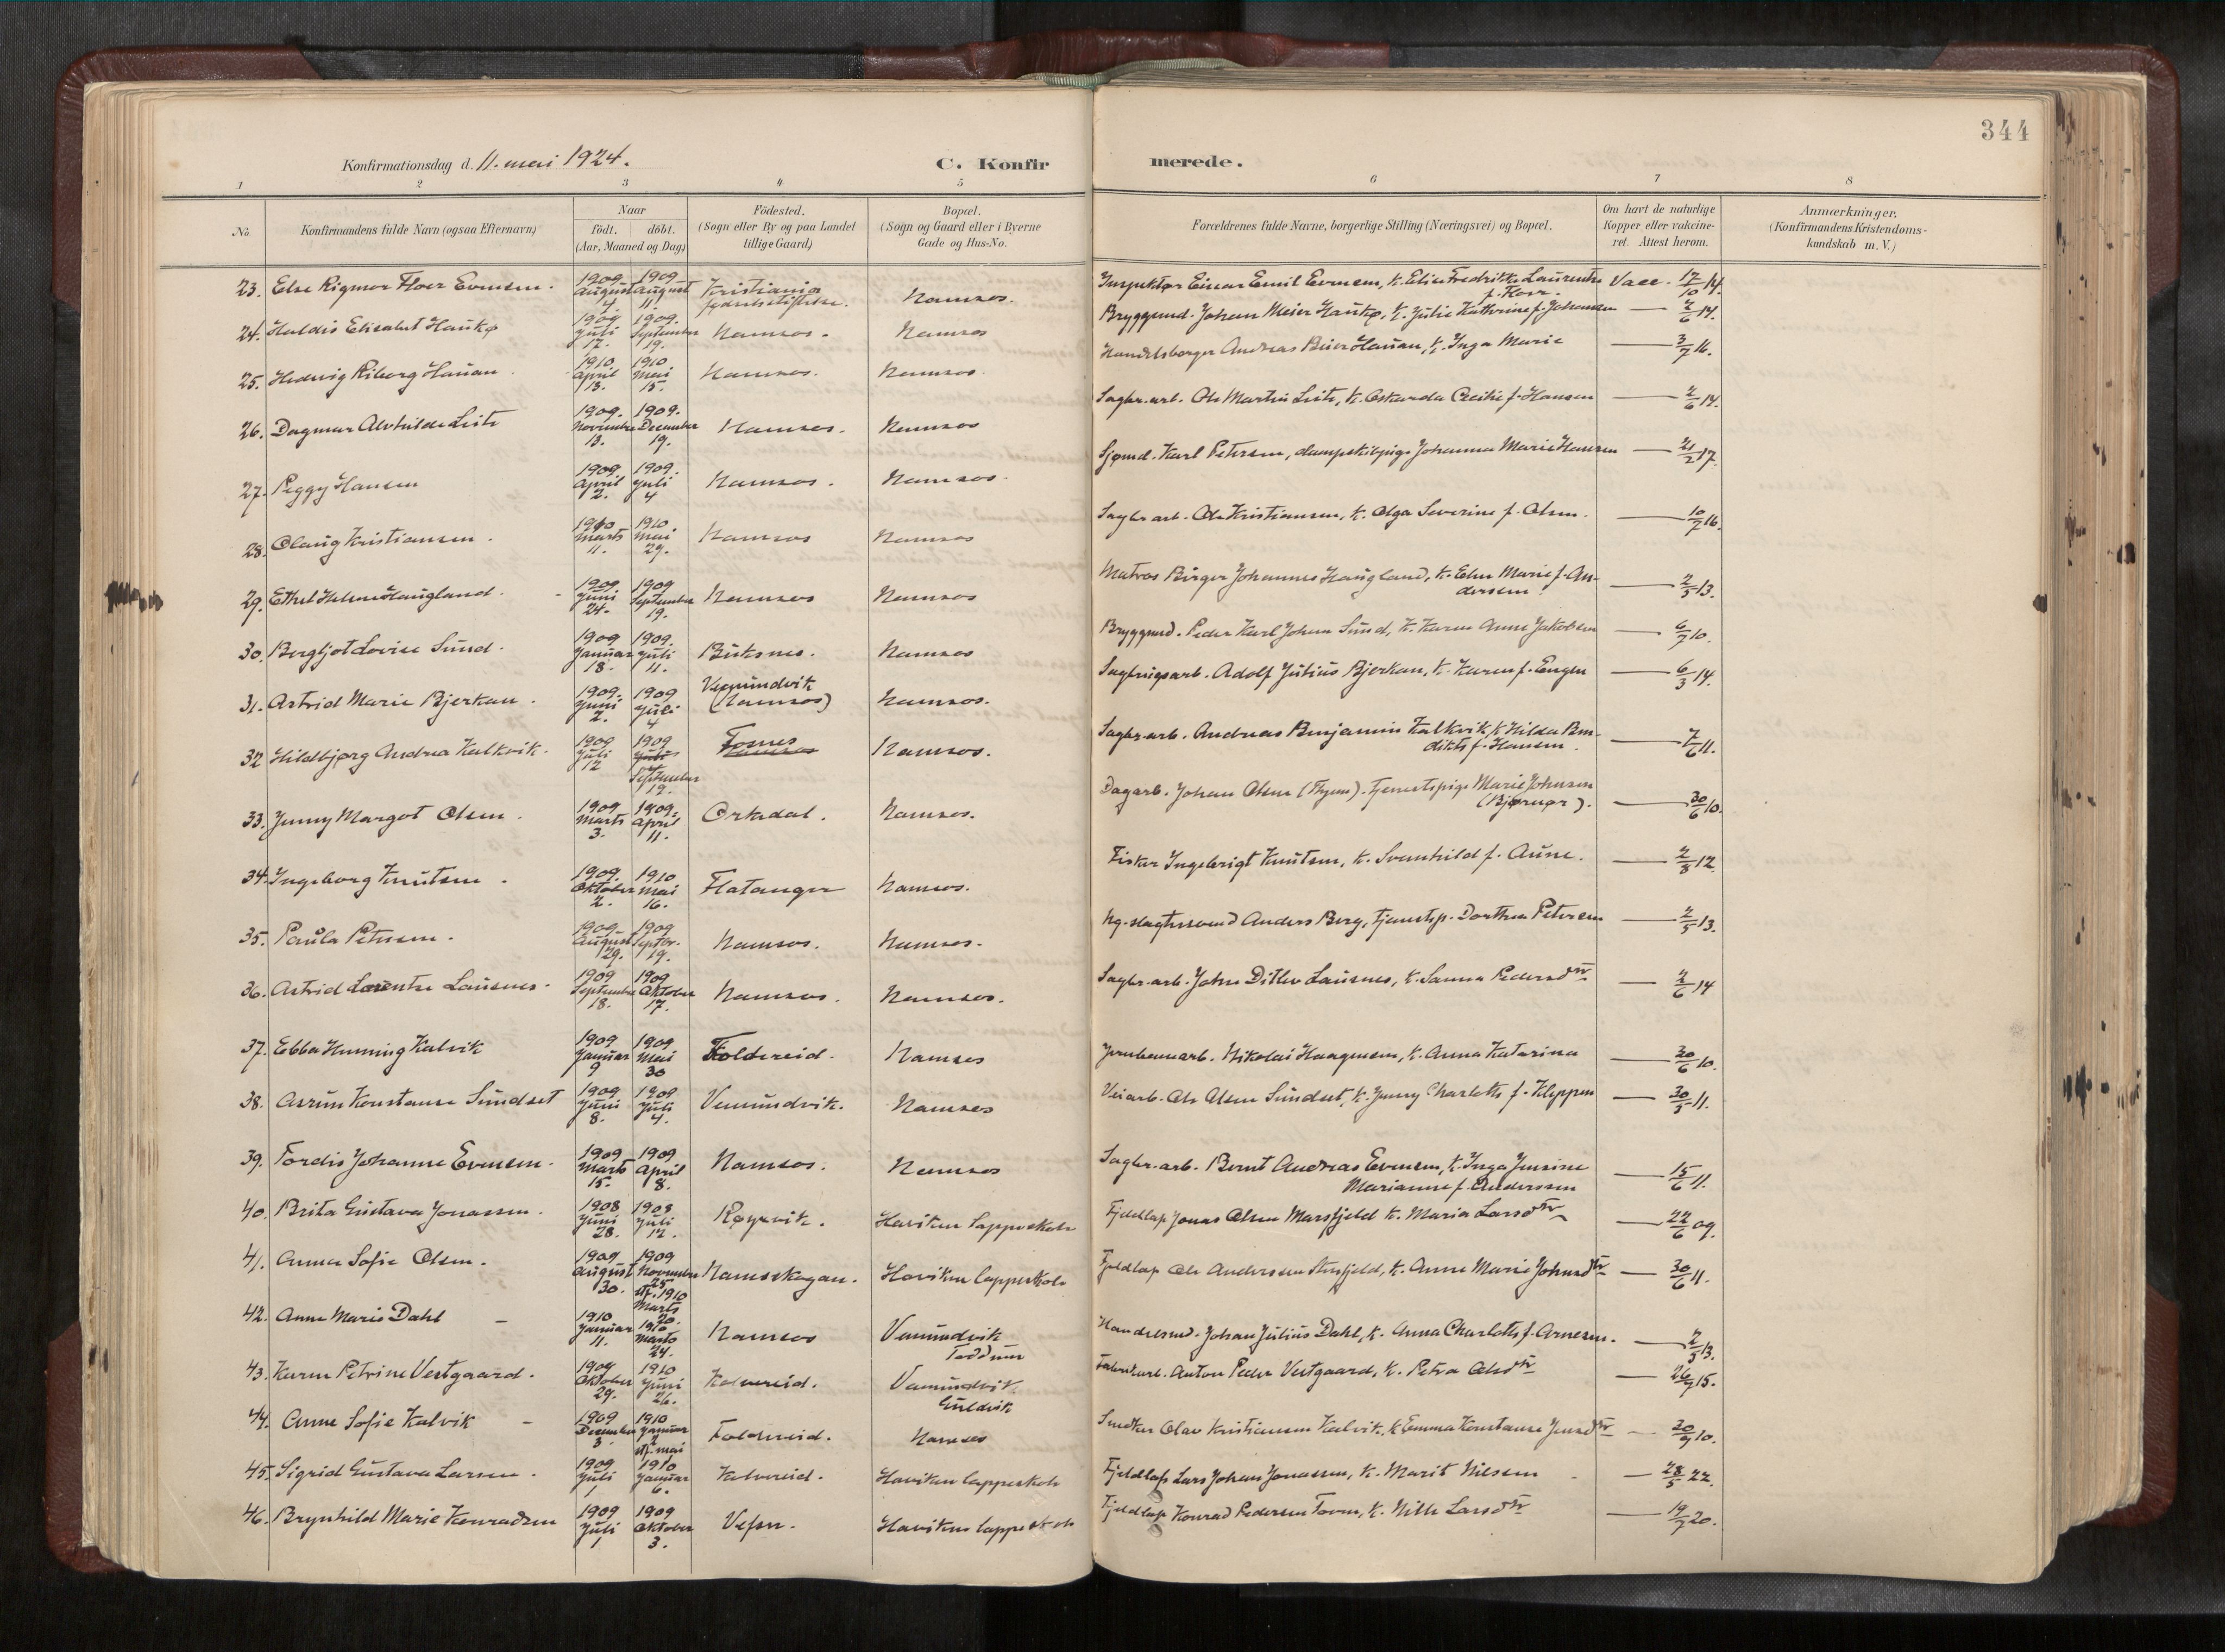 344
Konfirmationsdag d. 11. mai 1924.
C. Konfirmerede.
1 2 3 4 5 6 7 8
No. Konfirmandens fulde Navn (ogsaa Efternavn) Naar født. døbt. (Aar, Maaned og Dag) Fødested. (Sogn eller By og paa Landet tillige Gaard) Bopæl. (Sogn og Gaard eller i Byerne Gade og Hus-No. Forældrenes fulde Navne, borgerlige Stilling (Næringsvei) og Bopæl. Om havt de naturlige Kopper eller vakcineret. Attest herom. Anmærkninger. (Konfirmandens Kristendomskundskab m. V.)
23. Else Rigmor Floer Evensen. 1909 August 4. 1909 August 11. Kristiania fødselsstiftelse. Namsos. Inspektør Einar Emil Evensen, k. Elise Fredrikke Laurentse Vacc. 17/10 14.
24. Haldis Elisabet Haukø 1909 Juli 17. 1909. September 19. Namsos. Namsos Bryggemd. Johan Meier Haukø, k. Julie Kathrine f. Johansen — 2/6 14.
25. Hedvig Riborg Hauan 1910. April 13. 1910 Mai 15. Namsos. Namsos Handelsborger Andreas Beier Hauan, k. Inga Marie — 3/7 16.
26. Dagmar Alvhilde Leite 1909. November 13. 1909. December 19. Namsos. Namsos Sagbr.arb. Ole Martin Leite, k. Oskarda Cecilie f. Hansen — 2/6 14.
27. Peggy Hansen 1909. April 2. 1909. Juli 4 Namsos. Namsos Sjømd. Karl Petersen, dampskibspige Johanna Marie Hansen — 21/2 17.
28. Olaug Kristiansen. 1910 Marts 11. 1910 Mai 29. Namsos Namsos Sagbr.arb. Ole Kristiansen, k. Olga Severine f. Olsen. — 10/7 16.
29. Ethel Helene Haugland. 1909 Juni 24. 1909 September 19. Namsos Namsos Matros Birger Johannes Haugland, k. Elen Marie f. Andersen — 2/5 13.
30. Bergljot Lovise Sund. 1909 Januar 18. 1909. Juli 11. Buksnes. Namsos Bryggemd. Peder Karl Johan Sund, k. Karen Anne Jakobsen — 6/7 10.
31. Astrid Marie Bjerkan. 1909. Juni 2. 1909 Juli 4 Vemundvik (Namsos) Namsos. Sagbrugsarb. Adolf Julius Bjerkan, k. Karen f. Engen — 6/3 14.
32 Hildbjørg Andrea Kalkvik. 1909 Juli 12 1909 Juli September 19. Fosnes Namsos Namsos. Sagbr.arb. Andreas Benjamin Kalkvik, k. Hilda Bendikte f. Hansen. — 7/6 11.
33. Jenny Margot Olsen. 1909 Marts 3. 1909. April 11. Orkedal. Namsos. Dagarb. Johan Olsen (Thyem). Tjenestepige Marie Johnsen (Bjørnør). — 30/6 10.
34. Ingeborg Knutsen. 1909. Oktober 2. 1910 Mai 16. Flatanger Namsos. Fisker Ingebrigt Knutsen, k. Svanhild f. Aune. — 2/8 12.
35. Paula Petersen. 1909 August 29. 1909 Septbr. 19. Namsos. Namsos. Ug. slagtersvend Anders Berg, Tjenestp. Dorthea Petersen — 2/5 13.
36. Astrid Lorentse Lausnes. 1909 September 18. 1909 Oktober 17. Namsos. Namsos. Sagbr.arb. Johan Ditlev Lausnes, k. Sanna Pedersdtr — 2/6 14
37. Ebba Henning Kalvik 1909 Januar 9 1909 Mai 30 Foldereid. Namsos Jernbanearb. Nikolai Haagensen, k. Anna Katarina — 30/6 10.
38. Asrun Konstanse Sundset 1909 Juni 8. 1909 Juli 4. Vemundvik. Namsos Veiarb. Ole Olsen Sundset, k. Jenny Charlotte f. Kleppen — 30/5 11.
39. Tordis Johanne Evensen. 1909 Marts 15. 1909 April 8. Namsos. Namsos Sagbr.arb. Bernt Andreas Evensen, k. Inga Jensine Marianne f. Anderssen — 15/6 11.
40. Brita Gustava Jonassen. 1908 Juni 28. 1908 Juli 12. Røyrvik. Haviken lappeskole Fjeldlap Jonas Olsen Marsfjeld k. Maria Larsdtr — 22/6 09.
41. Anna Sofie Olsen. 1909 August 30. 1909 November 25 stf. 1910 Marts 20. Namsskogan. Haviken lappeskole Fjeldlap Ole Andersen Stenfjeld, k. Anne Marie Johnsdtr — 30/6 11.
42. Anne Marie Dahl 1910 Januar 11. 1910 Marts 24. Namsos Vemundvik Duun Handelsmd. Johan Julius Dahl, k. Anna Charlotte f. Arnesen. — 2/5 13.
43. Karen Petrine Vestgaard. 1909 Oktober 29. 1910 Juni 26. Kolvereid. Vemundvik Guldvik Fabrikarb. Anton Peder Vestgaard, k. Petra Olsdtr — 26/7 15.
44. Anne Sofie Kalvik 1909 December 3 1910 Januar 2 stf. mai Foldereid. Namsos Snedker Olav Kristiansen Kalvik, k. Emma Konstanse Jensdtr — 20/9 10.
45. Sigrid Gustava Larsen. 1909 Juli 1 1910 Januar 6. Kolvereid. Haviken lappeskole Fjeldlap Lars Johan Jonassen, k. Marit Nilsen — 28/5 22.
46. Brynhild Marie Konradsen 1909 Juli 1 1909 Oktober 3. Vefsn. Haviken lappeskole Fjeldlap Konrad Pedersen Toven, k. Nille Larsdtr — 19/7 20.